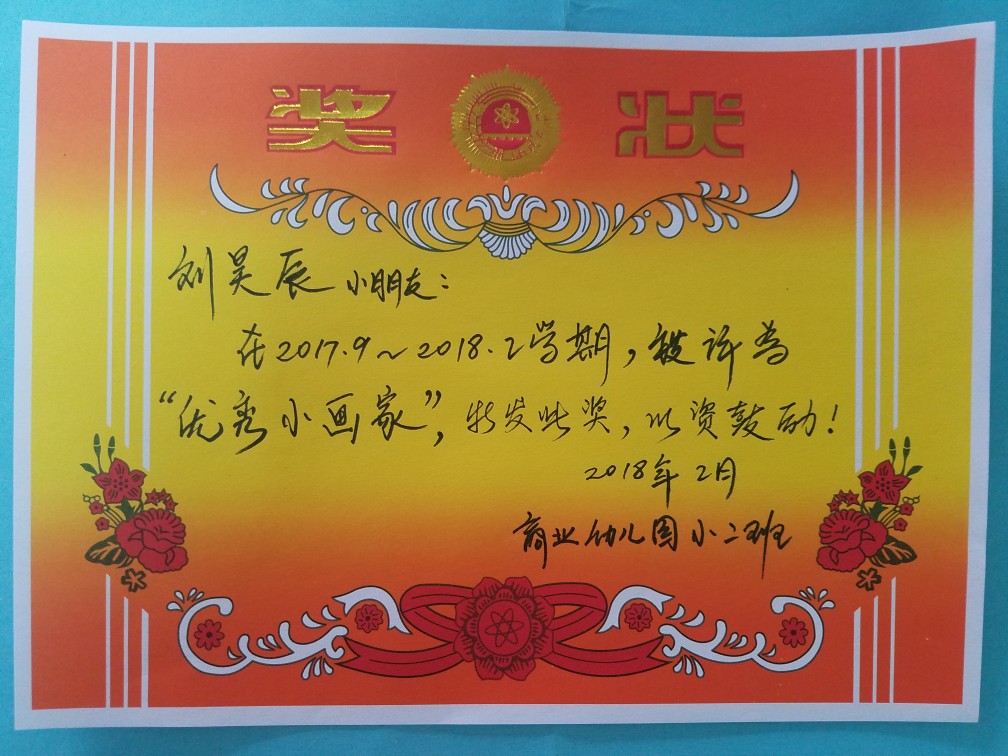 奖状
刘昊辰 小朋友：
在2017.9～2018.2学期，被评为
“优秀小画家”，特发此奖，以资鼓励！
2018年2月
商业幼儿园小二班